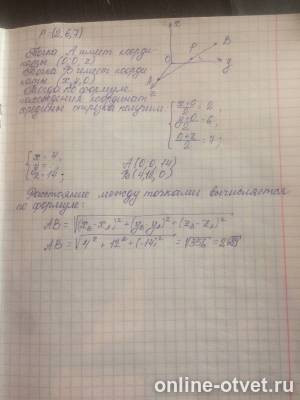 P (2,6,7)
Точка A имеет коорди-
наты (0; 0; z)
Точка B имеет коорди-
наты (x, y, 0)
по формуле
нахождения координат
середины отрезка получим:
z
P
B
O
y
A
x
{ x+0/2 = 2,
y+0/2 = 6,
0+z/2 = 7;
{ x = 4,
z = 14.
A(0; 0; 14)
B(4, 12, 0)
Расстояние между точками вычисляется
по формуле:
AB = √((x_B - x_A)² + (y_B - y_A)² + (z_B - z_A)²
AB = √(4² + 12² + (-14)²) = √356 = 2√89
online-otvet.ru